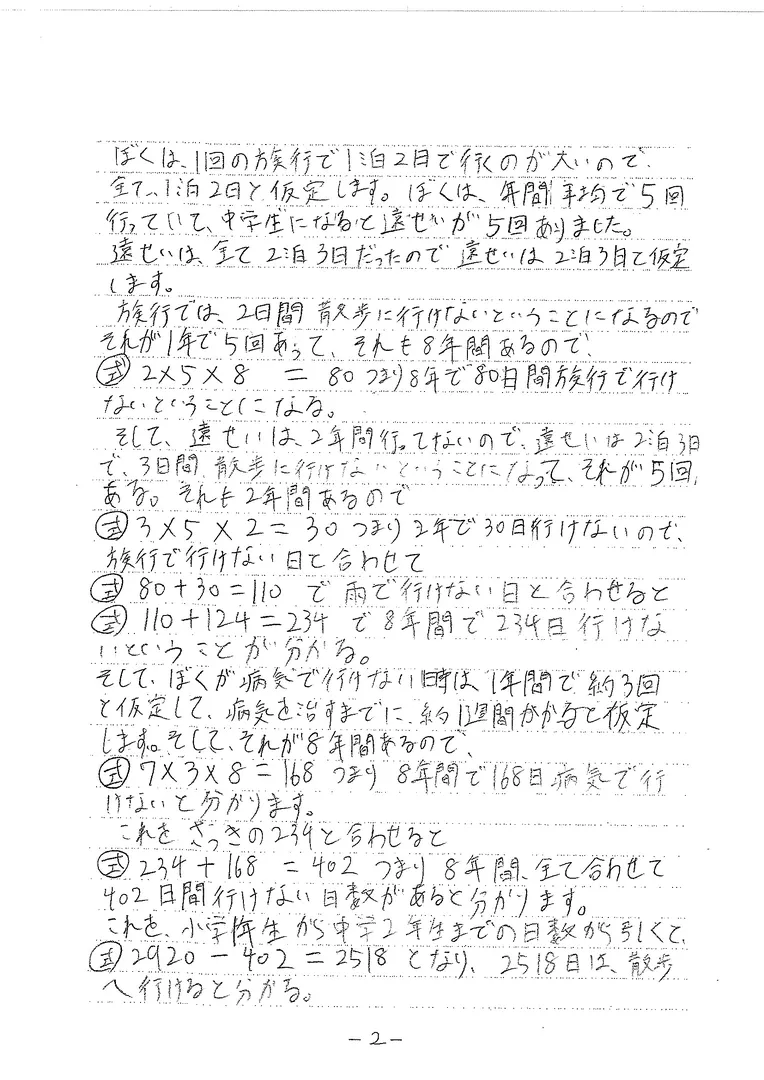 ぼくは、1回の旅行で1泊2日で行くのが大いので、
全て、1泊2日と仮定します。ぼくは、年間平均で5回
行っていて、中学生になると遠せいが5回ありました。
遠せいは、全て2泊3日だったので遠せいは2泊3日と仮定
します。
旅行では、2日間散歩に行けないということになるので
それが1年で5回あって、それも8年間あるので、
式 2×5×8 = 80 つまり8年で80日間旅行で行け
ないということになる。
そして、遠せいは、2年間行ってないので、遠せいは2泊3日
で、3日間散歩に行けないということになって、それが5回
ある。それも2年間あるので
式 3×5×2=30 つまり2年で30日行けないので、
旅行で行けない日と合わせて
式 80+30=110 で雨で行けない日と合わせると
式 110+124=234 で8年間で234日行けな
いということが分かる。
そして、ぼくが病気で行けない時は、1年間で約3回
と仮定して、病気を治すまでに、約1週間かかると仮定
します。そして、それが8年間あるので、
式 7×3×8=168 つまり8年間で168日病気で行
けないと分かります。
これをさっきの234と合わせると
式 234+168 =402 つまり8年間、全て合わせて
402日間行けない日数があると分かります。
これを、小学1年生から中学2年生までの日数から引くと、
式 2920-402=2518となり、2518日は、散歩
へ行けると分かる。
-2-